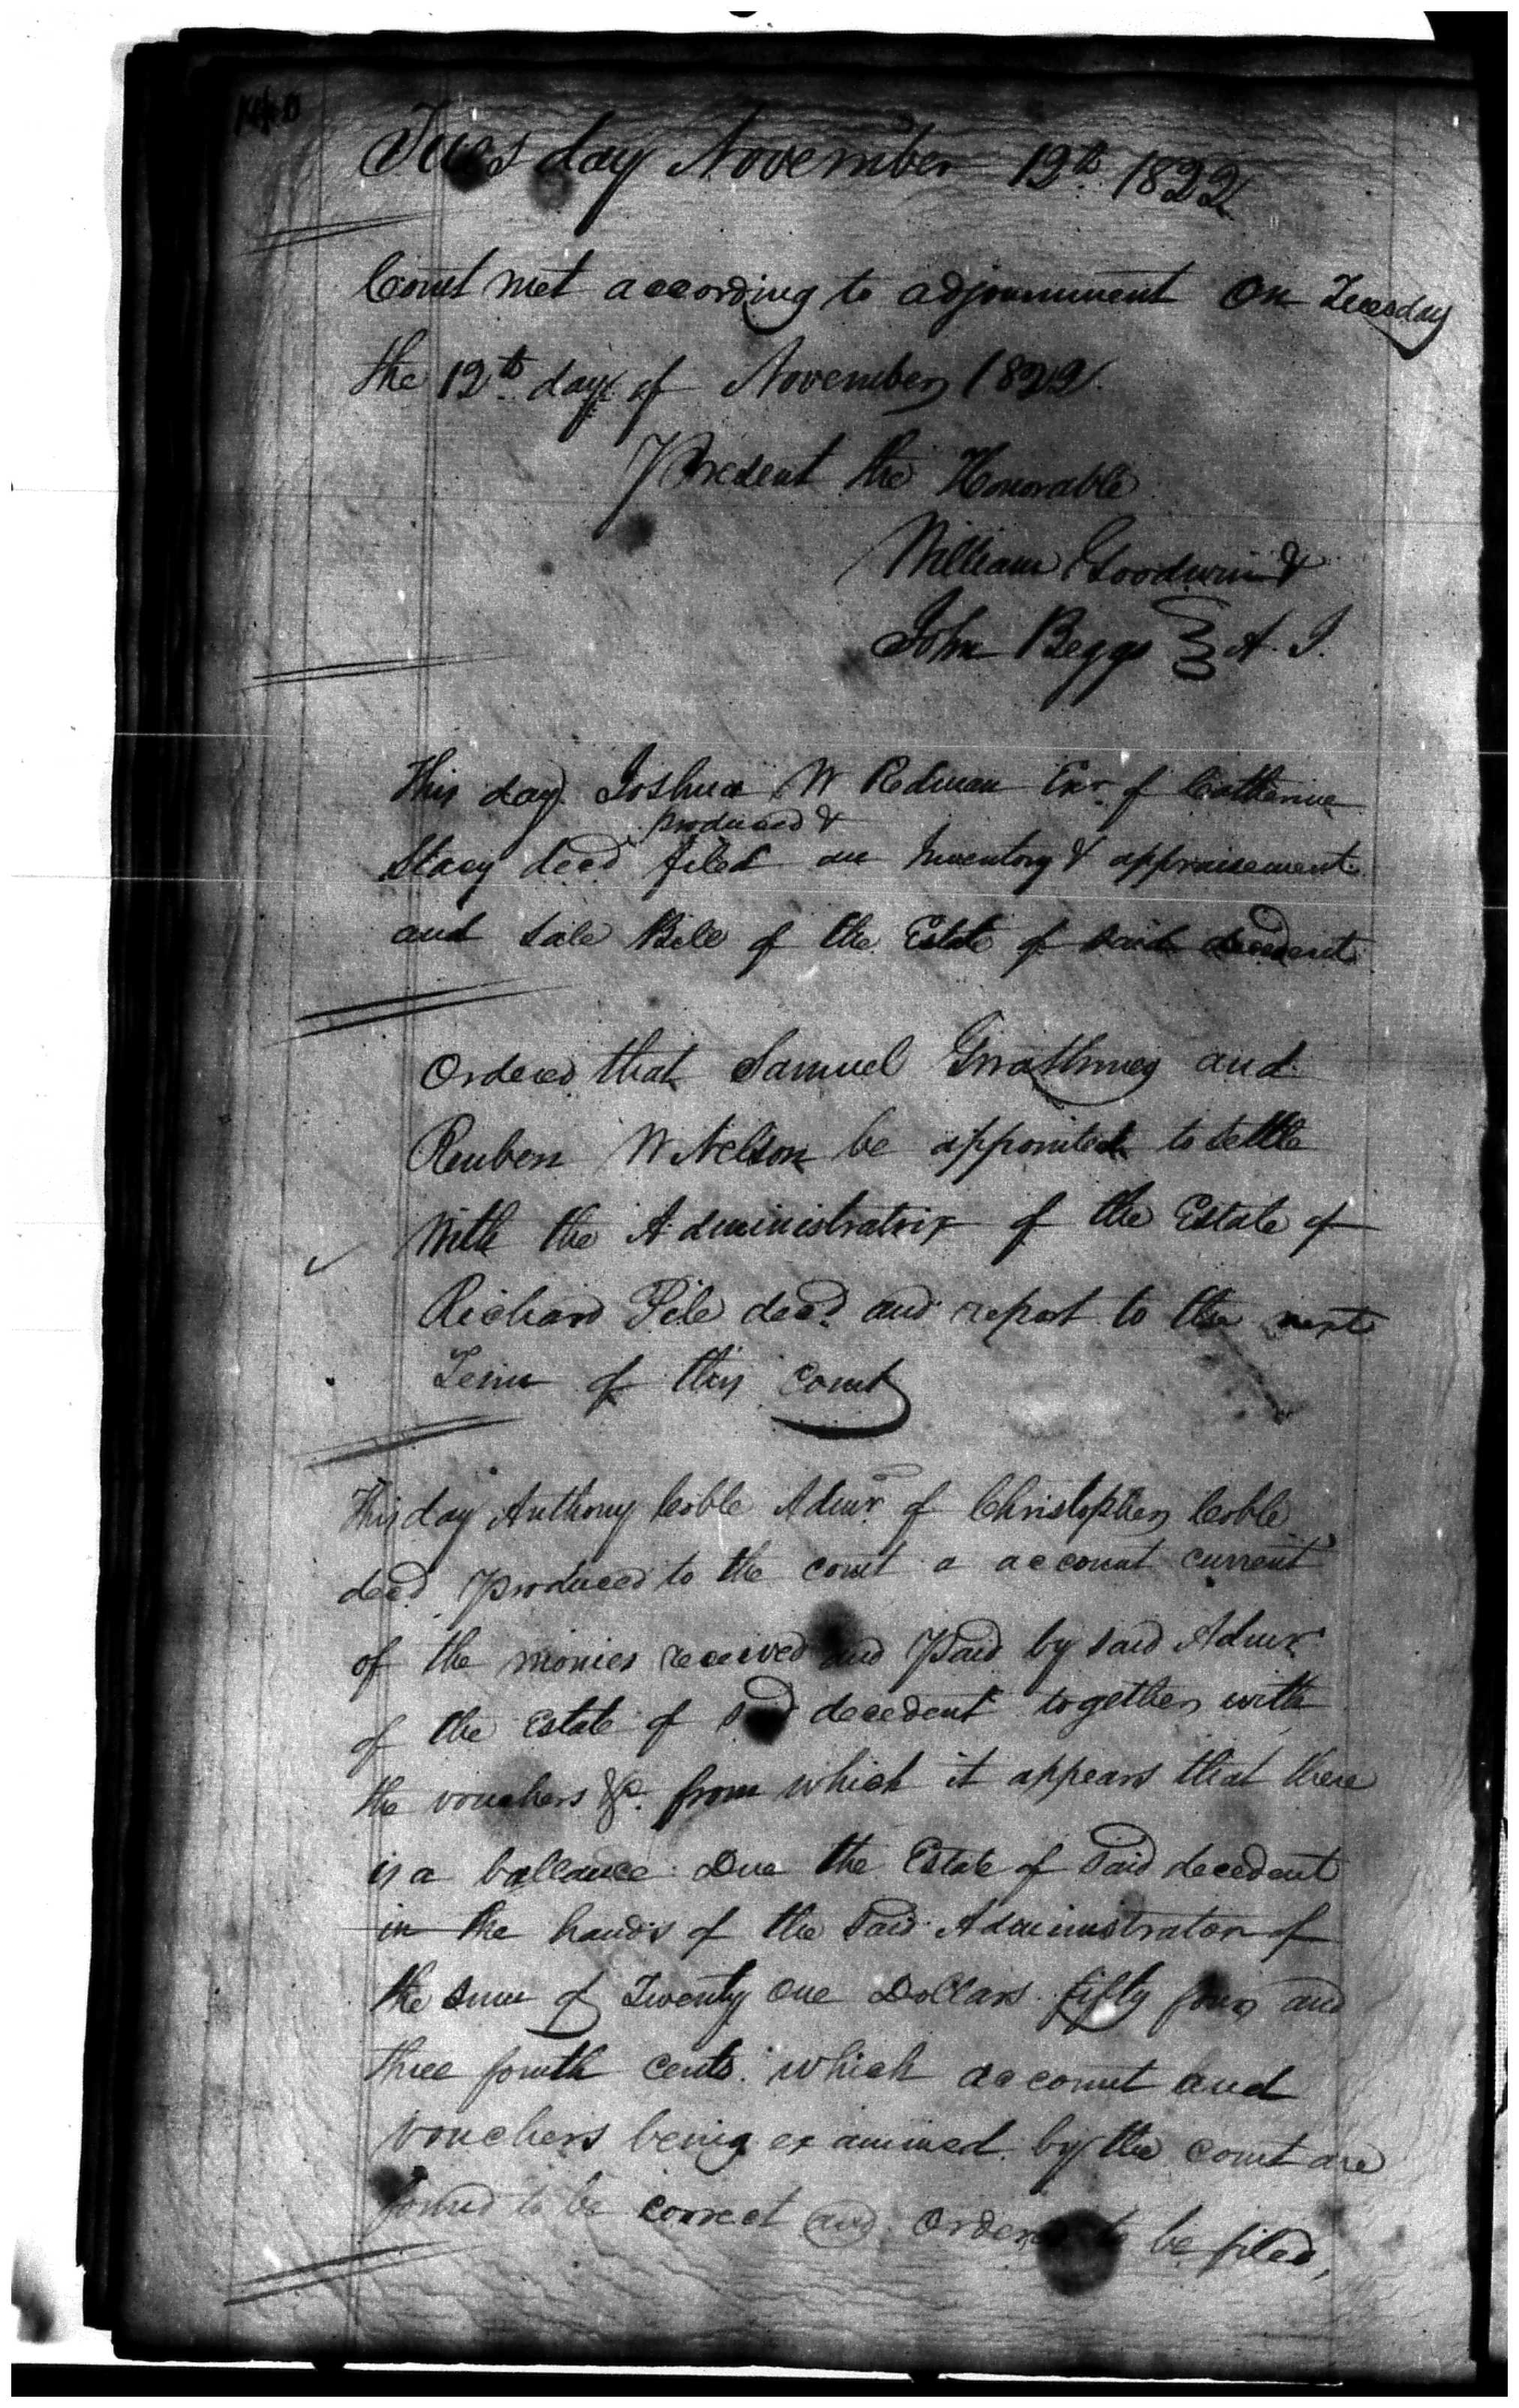 Tuesday November 12th 1822
Court met according to adjournment On Tuesday
the 12th day of November 1822.
Present the Honorable
William Goodwin &
John Beggs } A. J.
This day Joshua W Redman Exr. of Catherine
produced &
Stacy decd filed an Inventory & appraisement
and Sale Bill of the Estate of said decedent
Ordered that Samuel Gwathmey and
Reuben W Nelson be appointed to settle
With the Administratrix of the Estate of
Richard Pile decd. and report to the next
Term of this Court
This day Anthony Coble Admr. of Christopher Coble
decd. Produced to the court a account current
of the monies received and Paid by said Admr.
of the Estate of sd decedent together with
the vouchers &c. from which it appears that there
is a ballance Due the Estate of Said decedent
in the hands of the Said Administrator of
the Sum of Twenty One Dollars fifty four and
three fourth cents. which account and
vouchers being examined by the court are
found to be correct and Ordered to be filed,